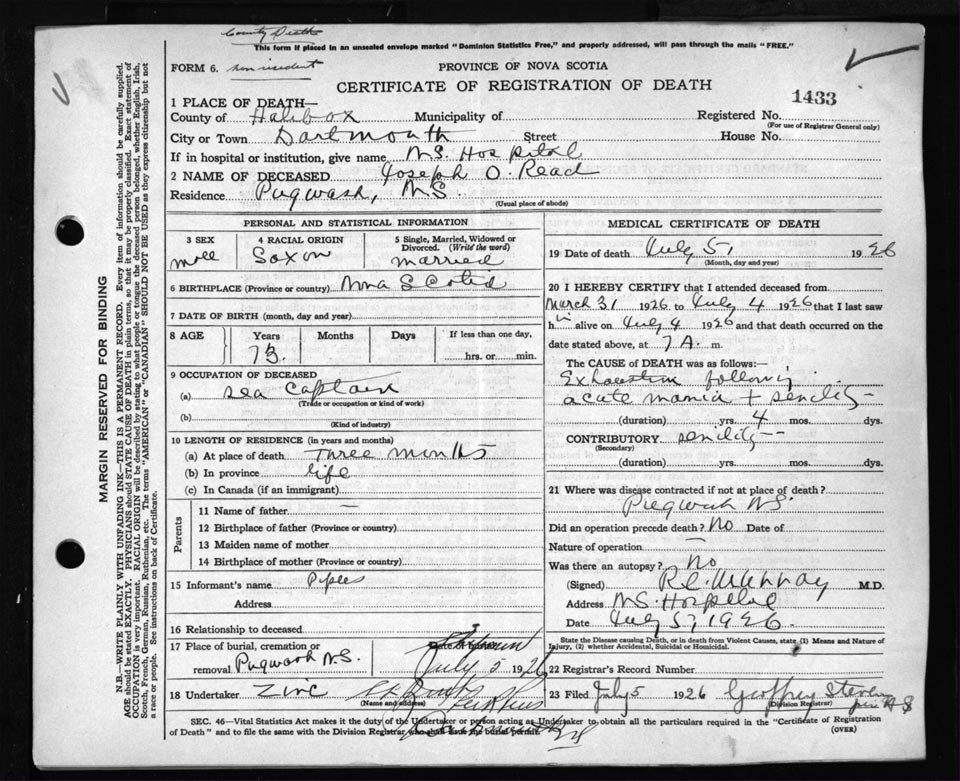 County Death
This form if placed in an unsealed envelope marked "Dominion Statistics Free," and properly addressed, will pass through the mails "FREE."
FORM 6. non resident
PROVINCE OF NOVA SCOTIA
CERTIFICATE OF REGISTRATION OF DEATH
1433
1 PLACE OF DEATH—
County of Halifax Municipality of Registered No.
(For use of Registrar General only)
City or Town Dartmouth Street House No.
If in hospital or institution, give name N.S. Hospital
2 NAME OF DECEASED Joseph O. Read
Residence Pugwash, N.S.
(Usual place of abode)
PERSONAL AND STATISTICAL INFORMATION
3 SEX 4 RACIAL ORIGIN 5 Single, Married, Widowed or Divorced. (Write the word)
male Saxon married
6 BIRTHPLACE (Province or country) Nova Scotia
7 DATE OF BIRTH (month, day and year)
8 AGE Years Months Days If less than one day,
73. hrs. or min.
9 OCCUPATION OF DECEASED
(a) sea captain
(Trade or occupation or kind of work)
(b)
(Kind of industry)
10 LENGTH OF RESIDENCE (in years and months)
(a) At place of death three months
(b) In province life
(c) In Canada (if an immigrant)
Parents
11 Name of father —
12 Birthplace of father (Province or country)
13 Maiden name of mother
14 Birthplace of mother (Province or country)
15 Informant's name
Address
16 Relationship to deceased
17 Place of burial, cremation or
removal Pugwash N.S. July 5 1926
18 Undertaker
(Name and address)
SEC. 46—Vital Statistics Act makes it the duty of the Undertaker or person acting as Undertaker to obtain all the particulars required in the "Certificate of Registration
of Death" and to file the same with the Division Registrar who shall issue the burial permit.
(OVER)
MEDICAL CERTIFICATE OF DEATH
19 Date of death July 5, 1926
(Month, day and year)
20 I HEREBY CERTIFY that I attended deceased from
March 31 1926 to July 4 1926 that I last saw
him alive on July 4 1926 and that death occurred on the
date stated above, at 7 A. m.
The CAUSE of DEATH was as follows:—
Exhaustion following
acute mania + senility —
(duration) yrs. 4 mos. dys.
CONTRIBUTORY senility —
(Secondary)
(duration) yrs. mos. dys.
21 Where was disease contracted if not at place of death?
Pugwash N.S.
Did an operation precede death? No Date of
Nature of operation —
Was there an autopsy? no
(Signed) M.D.
Address N.S. Hospital
Date July 5, 1926
State the Disease causing Death, or in death from Violent Causes, state (1) Means and Nature of
Injury, (2) whether Accidental, Suicidal or Homicidal.
22 Record Number
23 Filed July 5 1926 Geoffrey
(Division Registrar)
MARGIN RESERVED FOR BINDING
N.B.—WRITE PLAINLY WITH UNFADING INK—THIS IS A PERMANENT RECORD. Every item of information should be carefully supplied.
AGE should be stated EXACTLY. PHYSICIANS should STATE CAUSE OF DEATH in plain terms, so that it may be properly classified. Exact statement of
OCCUPATION is very important. RACIAL ORIGIN will be described by stating to what people or tongue the deceased person belonged, whether English, Irish,
Scotch, French, German, Russian, Ruthenian, etc. The terms "AMERICAN" or "CANADIAN" SHOULD NOT BE USED as they express citizenship but not
a race or people. See instructions on back of Certificate.